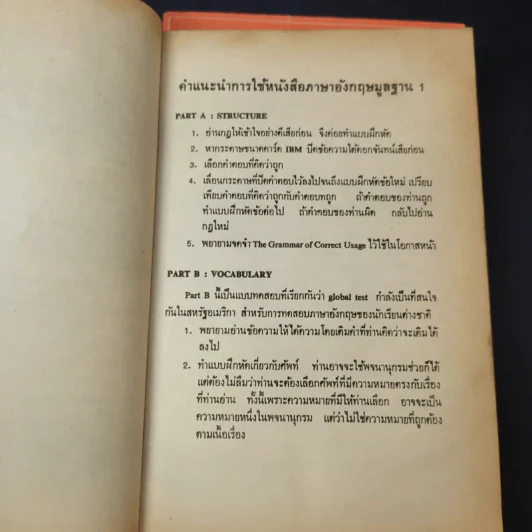 คำแนะนำการใช้หนังสือภาษาอังกฤษมูลฐาน 1
PART A : STRUCTURE
1. อ่านกฎให้เข้าใจอย่างดีเสียก่อน จึงค่อยทำแบบฝึกหัด
2. หากระดาษขนาดการ์ด IBM ปิดข้อความใต้ดอกจันทน์เสียก่อน
3. เลือกคำตอบที่คิดว่าถูก
4. เลื่อนกระดาษที่ปิดคำตอบไว้ลงไปจนถึงแบบฝึกหัดข้อใหม่ เปรียบ
เทียบคำตอบที่คิดว่าถูกกับคำตอบถูก ถ้าคำตอบของท่านถูก
ทำแบบฝึกหัดข้อต่อไป ถ้าคำตอบของท่านผิด กลับไปอ่าน
กฎใหม่
5. พยายามจดจำ The Grammar of Correct Usage ไว้ใช้ในโอกาสหน้า
PART B : VOCABULARY
Part B นี้เป็นแบบทดสอบที่เรียกกันว่า global test กำลังเป็นที่สนใจ
กันในสหรัฐอเมริกา สำหรับการทดสอบภาษาอังกฤษของนักเรียนต่างชาติ
1. พยายามอ่านข้อความให้ได้ความโดยเติมคำที่ท่านคิดว่าจะเติมได้
ลงไป
2. ทำแบบฝึกหัดเกี่ยวกับศัพท์ ท่านอาจจะใช้พจนานุกรมช่วยก็ได้
แต่ต้องไม่ลืมว่าท่านจะต้องเลือกศัพท์ที่มีความหมายตรงกับเรื่อง
ที่ท่านอ่าน ทั้งนี้เพราะความหมายที่มีให้ท่านเลือก อาจจะเป็น
ความหมายหนึ่งในพจนานุกรม แต่ว่าไม่ใช่ความหมายที่ถูกต้อง
ตามเนื้อเรื่อง